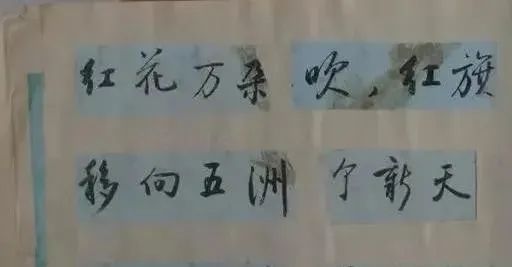 红花万朵 吹，红旗
移向五洲 个新天